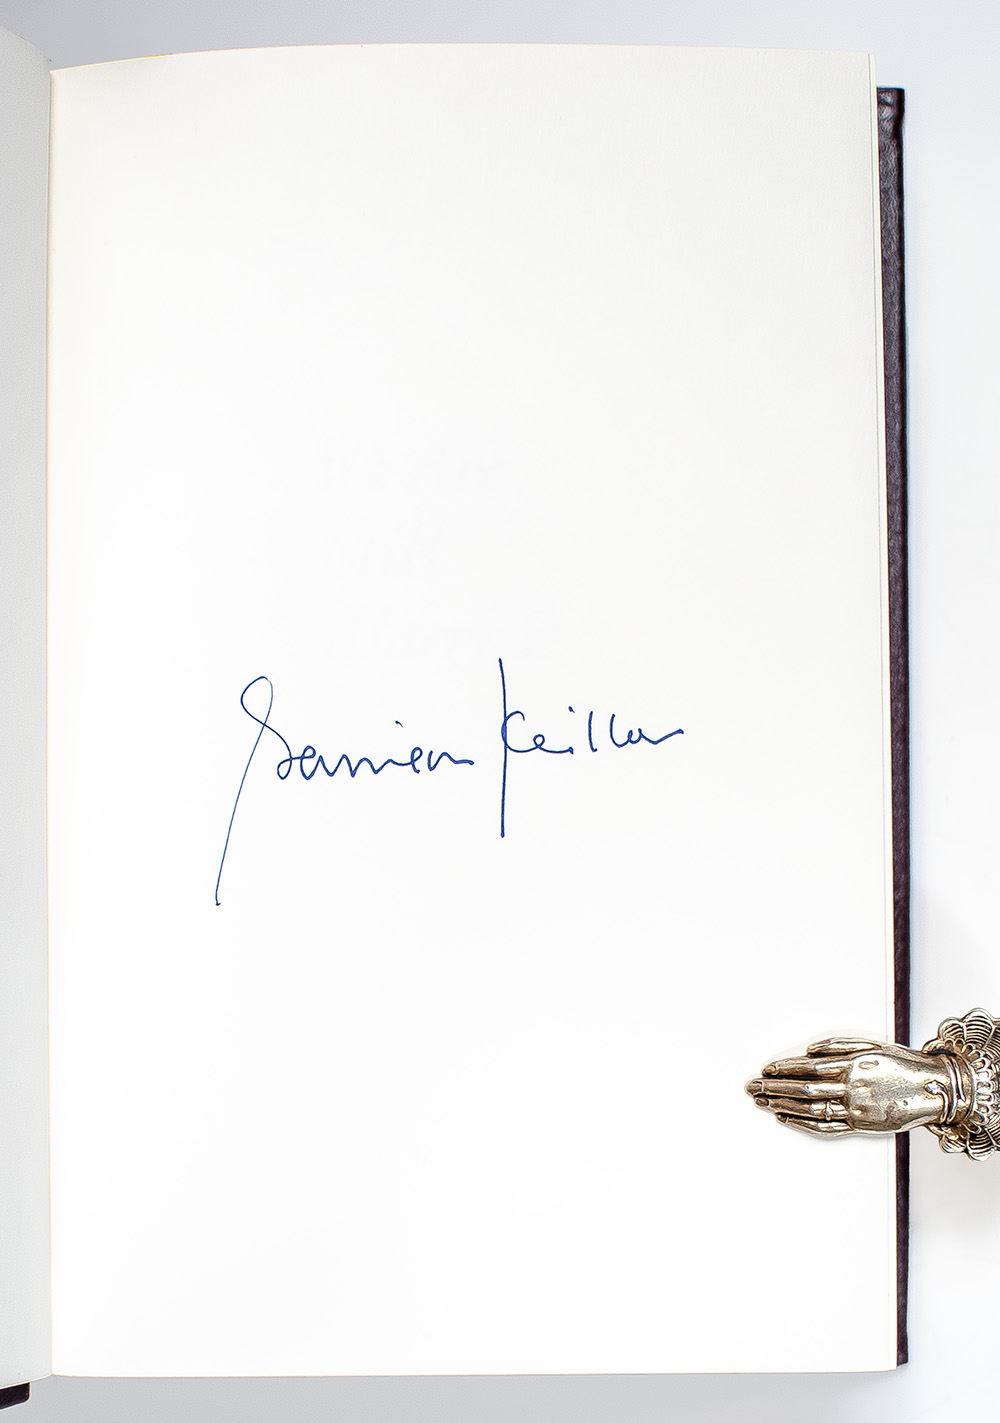 Garrison Keillor